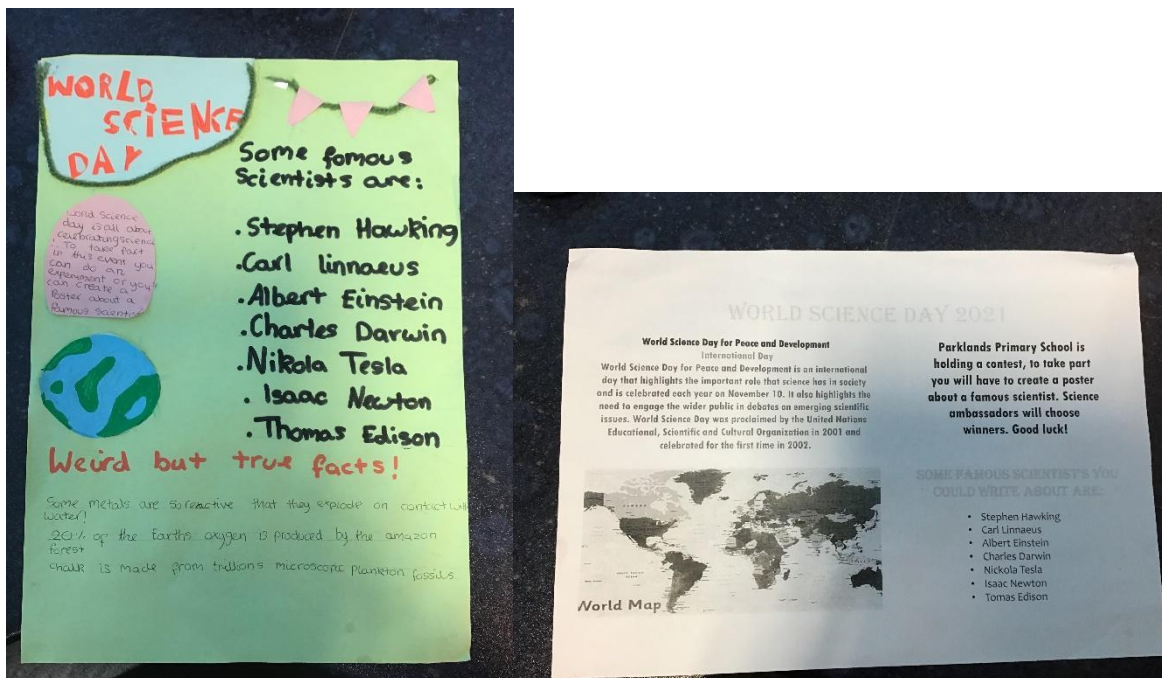 WORLD
SCIENCE
DAY
Some fomous
Scientists are:
. Stephen Hawking
. Carl linnaeus
. Albert Einstein
. Charles Darwin
. Nikola Tesla
. Isaac Newton
. Thomas Edison
World Science
day is all about
celebrating science
! To take part
in this event you
can do an
experiment or you
can create a
Poster about a
famous scientist
Weird but true facts!
Some metals are so reactive that they explode on contact with
water!
20% of the Earths oxygen is produced by the amazon
forest
chalk is made from trillions microscopic plankton fossils.
WORLD SCIENCE DAY 2021
World Science Day for Peace and Development
International Day
World Science Day for Peace and Development is an international
day that highlights the important role that science has in society
and is celebrated each year on November 10. It also highlights the
need to engage the wider public in debates on emerging scientific
issues. World Science Day was proclaimed by the United Nations
Educational, Scientific and Cultural Organization in 2001 and
celebrated for the first time in 2002.
World Map
Parklands Primary School is
holding a contest, to take part
you will have to create a poster
about a famous scientist. Science
ambassadors will choose
winners. Good luck!
SOME FAMOUS SCIENTIST'S YOU
COULD WRITE ABOUT ARE:
• Stephen Hawking
• Carl Linnaeus
• Albert Einstein
• Charles Darwin
• Nickola Tesla
• Isaac Newton
• Tomas Edison